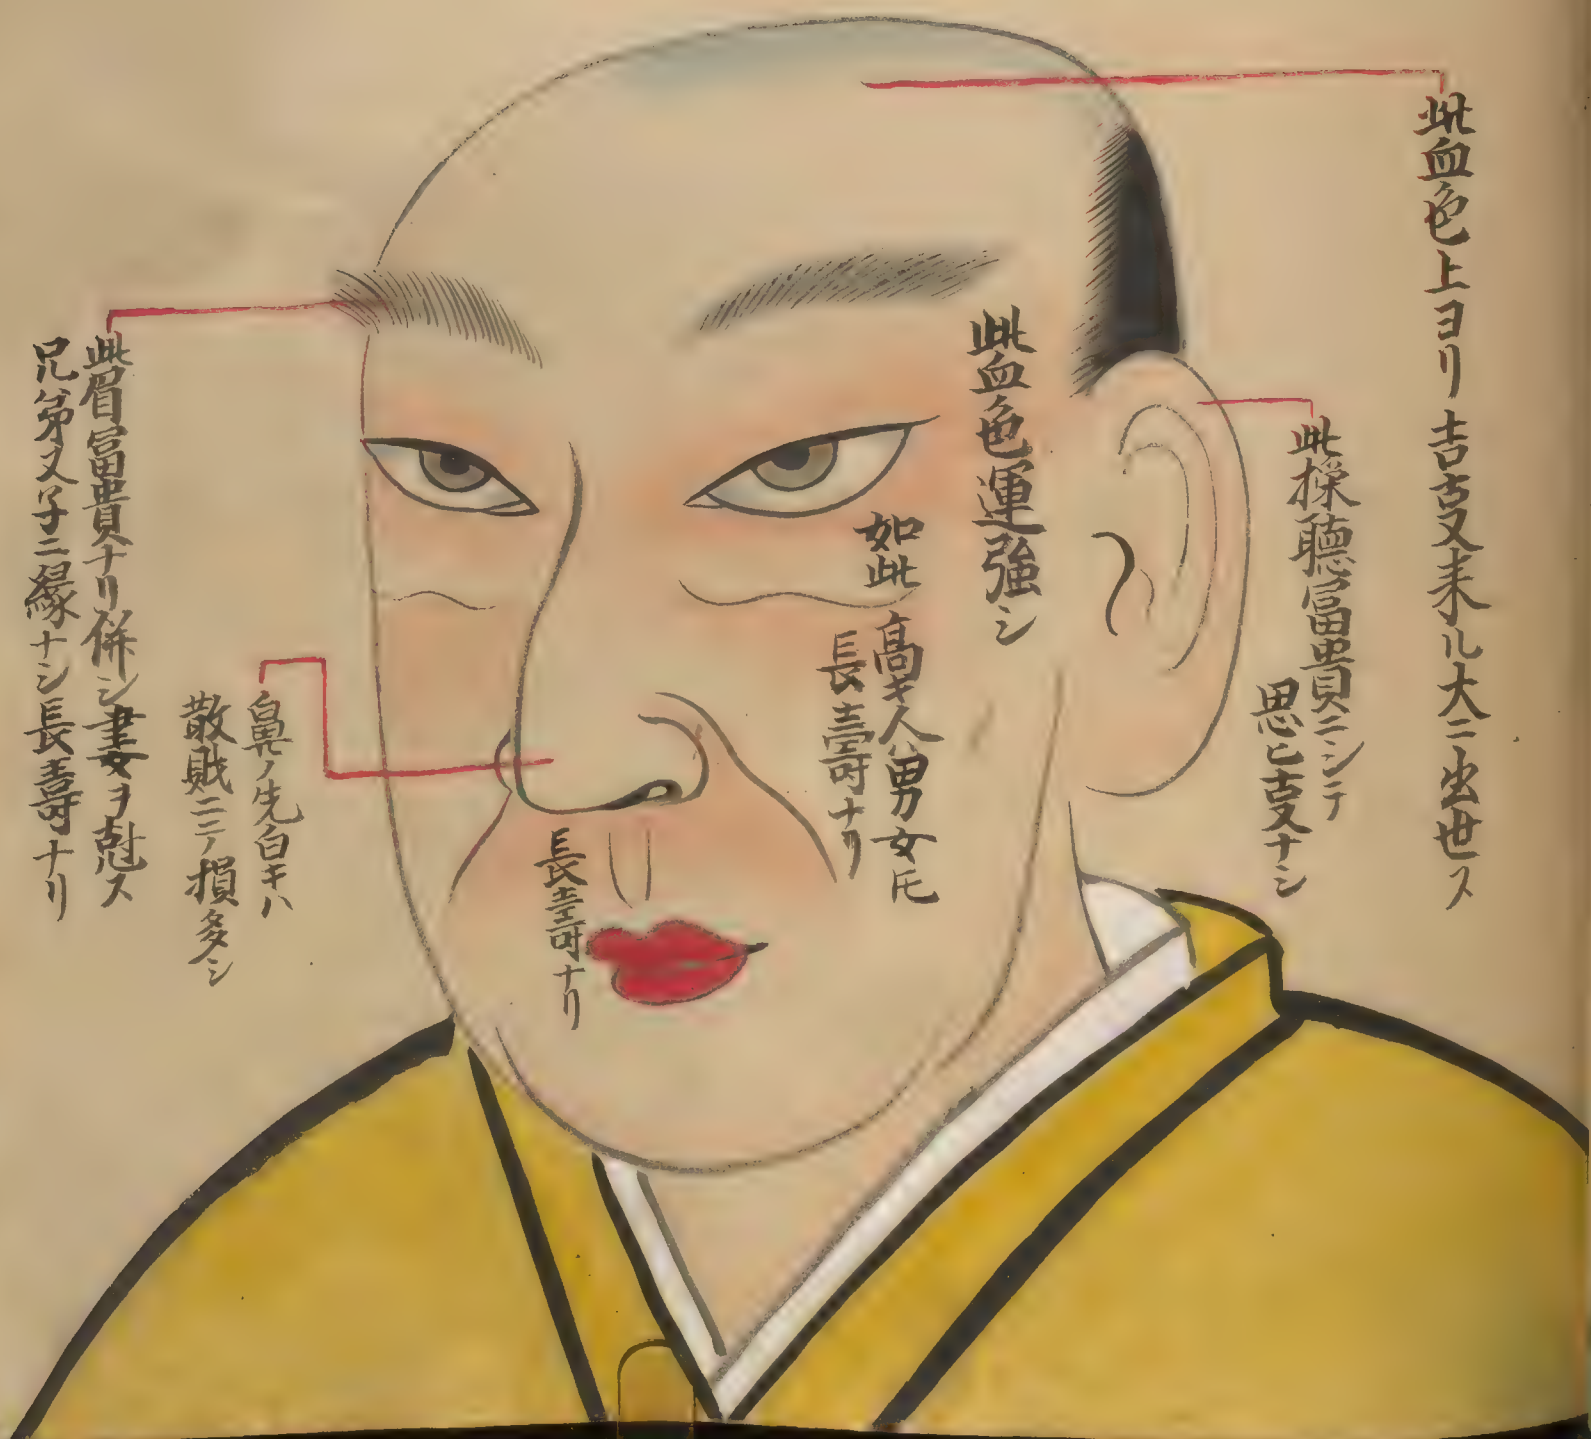 此血色上ヨリ吉支来ル大ニ出世ス
此操聴冨貴ニシテ
思ヒ支ナシ
此血色運強シ
如此
高キ人ハ男女𪜈
長壽ナリ
長壽ナリ
鼻ノ先白キハ
散財ニテ損多シ
此眉冨貴ナリ併シ妻ヲ尅ス
兄弟又子ニ縁ナシ長壽ナリ